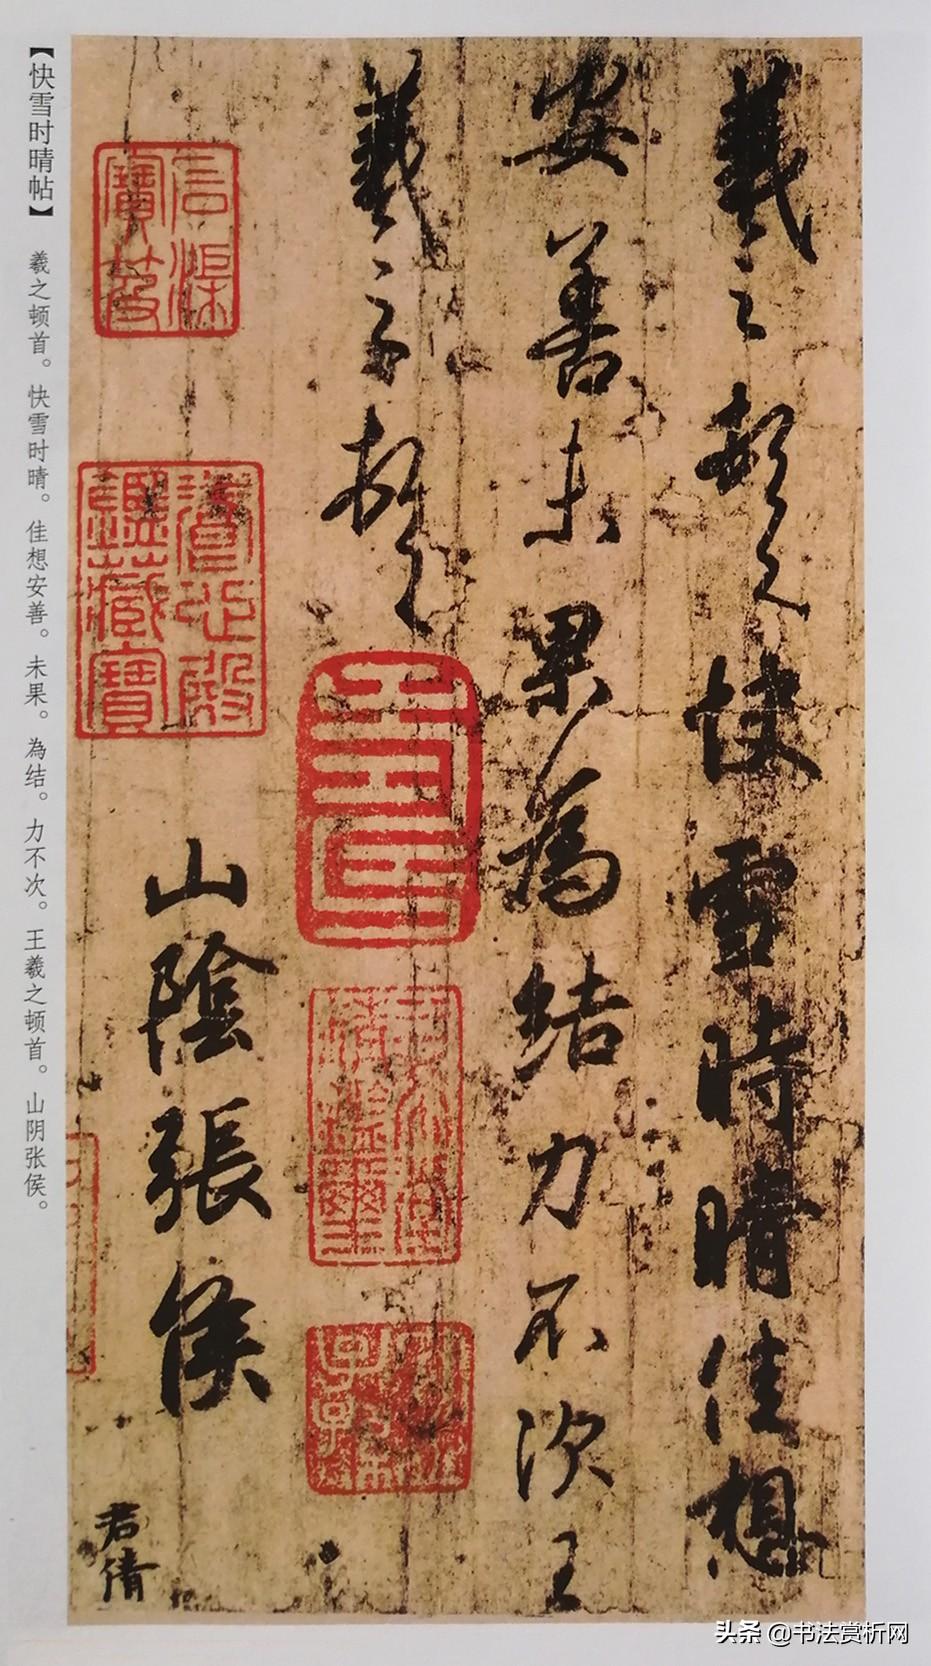 【快雪时晴帖】 羲之顿首。快雪时晴。佳想安善。未果。為结。力不次。王羲之顿首。山阴张侯。
羲之頓首快雪時晴佳想
安善未果為結力不次王
羲之頓首
山陰張侯
君倩
頭条 @书法赏析网